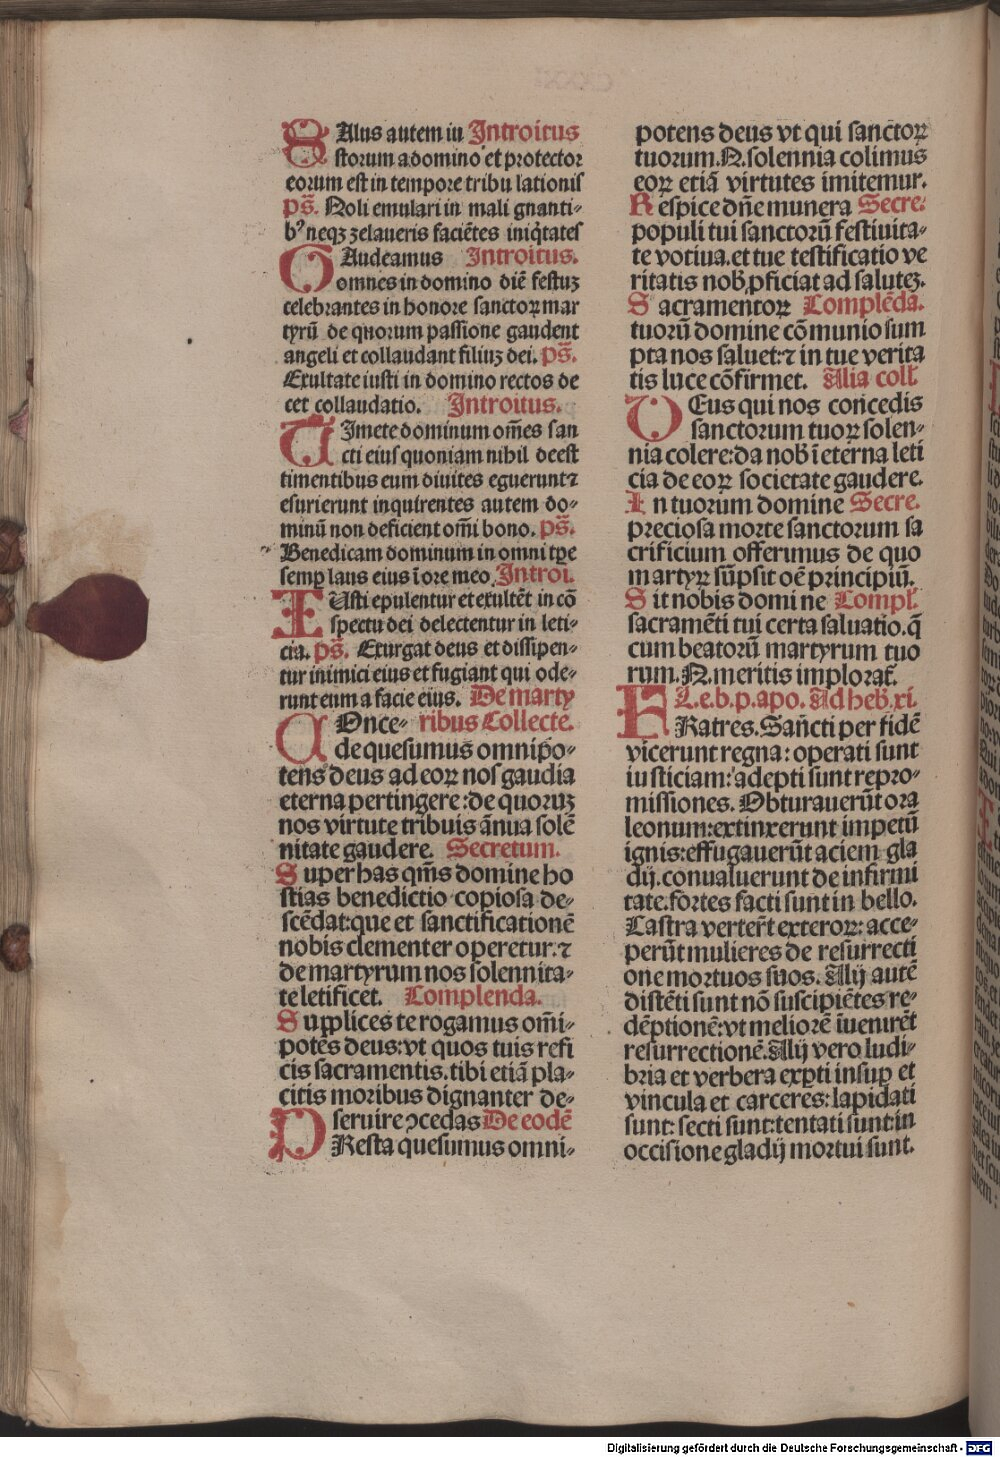 SAlus autem iu Introitus
storum a domino et protector
eorum est in tempore tribu lationis
ps̄. Noli emulari in mali gnanti⸗
bꝰ neqꝫ zelaueris faciētes iniq̇tates
GAudeamus Introitus.
omnes in domino diē festuꝫ
celebrantes in honore sanctoꝝ mar
tyrū de quorum passione gaudent
angeli et collaudant filiuꝫ dei. ps̄.
Exultate iusti in domino rectos de
cet collaudatio. Introitus.
TImete dominum om̄es san
cti eius quoniam nihil deest
timentibus eum diuites eguerunt⁊
esurierunt inquirentes autem do⸗
minū non deficient om̄i bono. ps̄.
Benedicam dominum in omni tp̄e
semꝑ laus eius ī ore meo. Introi.
IUsti epulentur et exultēt in cō
spectu dei delectentur in leti⸗
cia. ps̄. Exurgat deus et dissipen⸗
tur inimici eius et fugiant qui ode⸗
runt eum a facie eius. De marty
COnce⸗ ribus Collecte.
de quesumus omnipo⸗
tens deus ad eoꝝ nos gaudia
eterna pertingere: de quoruꝫ
nos virtute tribuis ānua solē
nitate gaudere. Secretum.
Super has qm̄s domine ho
stias benedictio copiosa de⸗
scēdat: que et sanctificationē
nobis clementer operetur: ⁊
de martyrum nos solennita⸗
te letificet. Complenda.
Supplices te rogamus om̄i⸗
potēs deus: vt quos tuis refi
cis sacramentis. tibi etiā pla⸗
citis moribus dignanter de⸗
seruire ꝯcedas De eodē
PResta quesumus omni⸗
potens deus vt qui sanctoꝝ
tuorum. N. solennia colimus
eoꝝ etiā virtutes imitemur.
Respice dn̄e munera Secre.
populi tui sanctorū festiuita⸗
te votiua. et tue testificatio ve
ritatis nob̄ ꝓficiat ad saluteꝫ.
Sacramentoꝝ Complēda.
tuorū domine cōmunio sum
pta nos saluet: ⁊ in tue verita
tis luce cōfirmet. Alia coll̄.
DEus qui nos concedis
sanctorum tuoꝝ solen⸗
nia colere: da nob̄ ī eterna leti
cia de eoꝝ societate gaudere.
In tuorum domine Secre.
preciosa morte sanctorum sa
crificium offerimus de quo
martyꝝ sūpsit oē principiū.
Sit nobis domi ne Compl̄.
sacramēti tui certa saluatio. q̄
cum beatorū martyrum tuo
rum. N. meritis implorat̄.
L. e. b. p. apo. Ad heb̄. xi.
FRatres. Sancti per fidē
vicerunt regna: operati sunt
iusticiam: adepti sunt repro⸗
missiones. Obturauerūt ora
leonum: extinxerunt impetū
ignis: effugauerūt aciem gla
dij. conualuerunt de infirmi
tate. fortes facti sunt in bello.
Castra verter̄t exteroꝝ: acce⸗
perūt mulieres de resurrecti
one mortuos suos. Alij autē
distēti sunt nō suscipiētes re⸗
dēptionē: vt meliorē īuenirēt
resurrectionē. Alij vero ludi⸗
bria et verbera exꝑti insuꝑ et
vincula et carceres: lapidati
sunt: secti sunt: tentati sunt: in
occisione gladij mortui sunt.
Digitalisierung gefördert durch die Deutsche Forschungsgemeinschaft - DFG